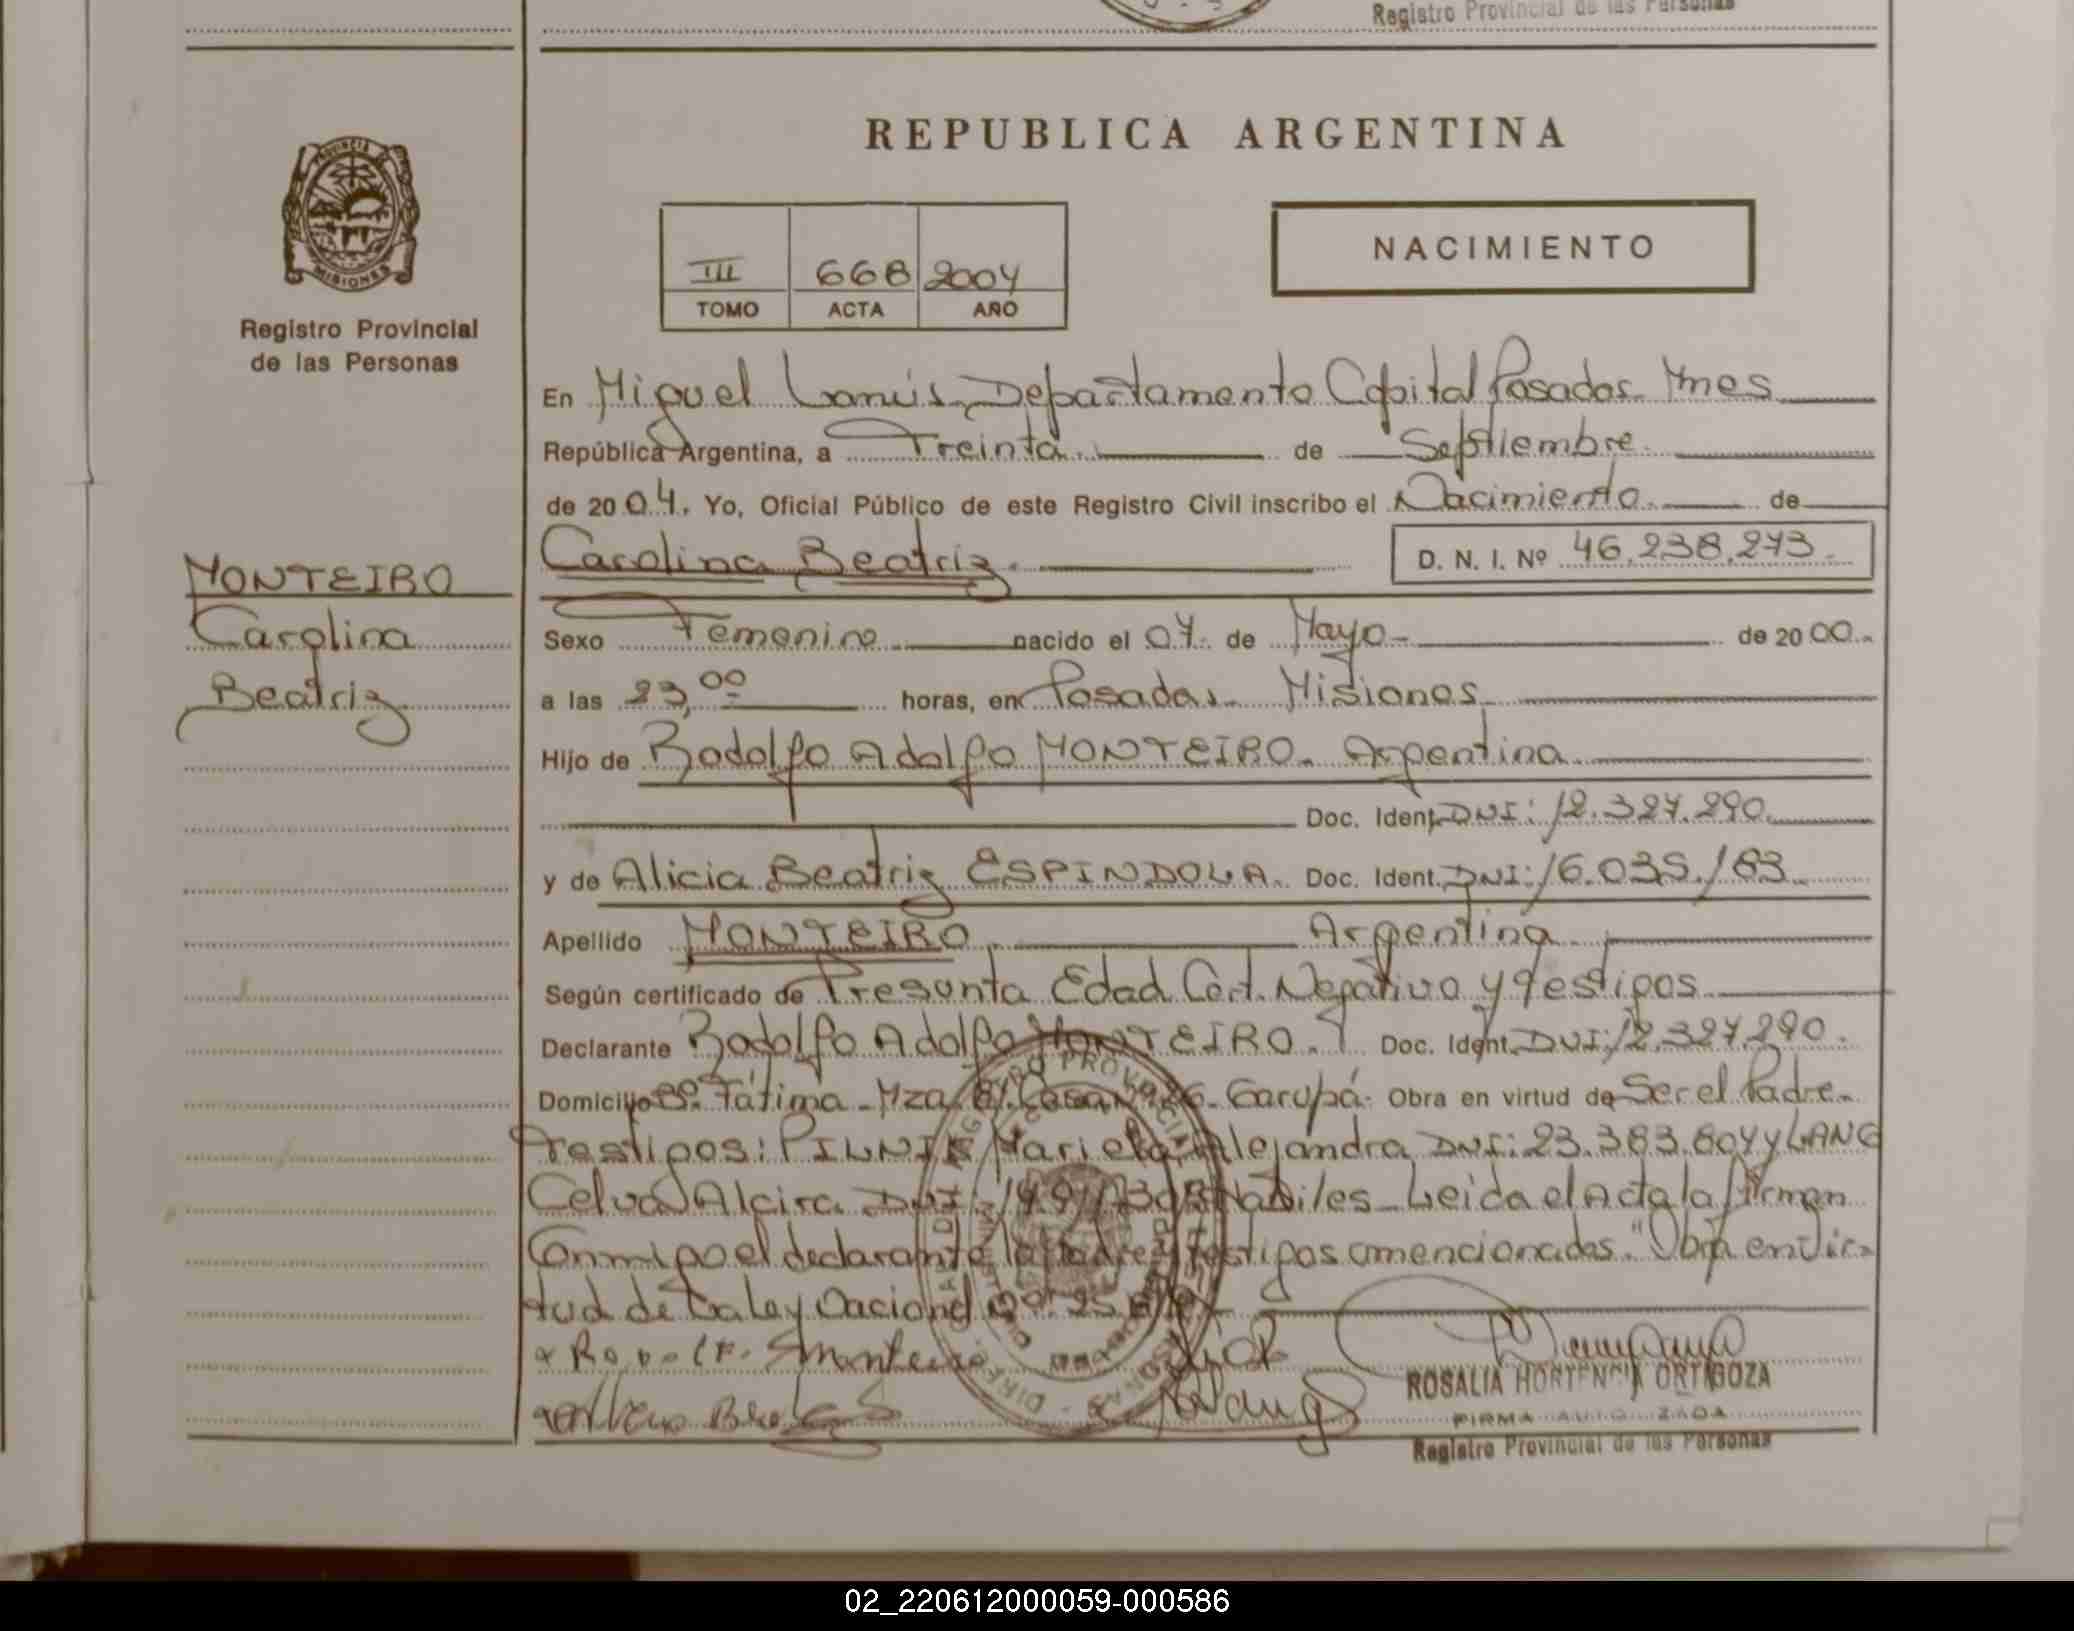 Registro Provincial de las Personas
REPUBLICA ARGENTINA
PROVINCIA DE
MISIONES
Registro Provincial
de las Personas
III 668 2004
TOMO ACTA AÑO
NACIMIENTO
En Miguel Lanús, Departamento Capital Posadas Mnes
República Argentina, a Treinta de Septiembre
de 2004. Yo, Oficial Público de este Registro Civil inscribo el Nacimiento de
Carolina Beatriz D. N. I. Nº 46.238.273
MONTEIRO
Carolina
Beatriz
Sexo Femenino nacido el 07 de Mayo de 2000
a las 23,00 horas, en Posadas Misiones
Hijo de Rodolfo Adolfo MONTEIRO. Argentina
Doc. Ident. DNI: 12.327.290
y de Alicia Beatriz ESPINDOLA. Doc. Ident. DNI: 16.035.183
Apellido MONTEIRO Argentina
Según certificado de Presunta Edad Cert. Negativo y testigos
Declarante Rodolfo Adolfo MONTEIRO. Doc. Ident. DNI: 12.327.290.
Domicilio Bº Fátima Mza. Casa Garupá. Obra en virtud de Ser el Padre
Testigos: PILNIK Mariela Alejandra DNI: 23.383.804 y LANG
Celva Alcira DNI: Hábiles Leida el Acta la firman
Conmigo el declarante la Madre y testigos amencionados. "Obra en Vir
tud de La Ley Nacional Nº
ROSALIA HORTENCIA ORTIGOZA
FIRMA AUTORIZADA
Registro Provincial de las Personas
02_220612000059-000586